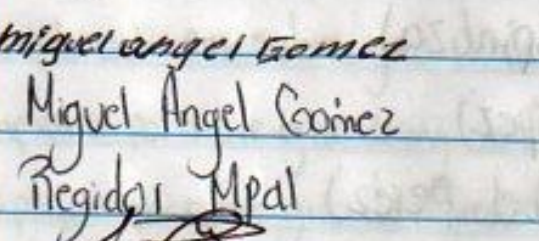 miguel angel Gomez
Miguel Angel Gomez
Regidor Mpal